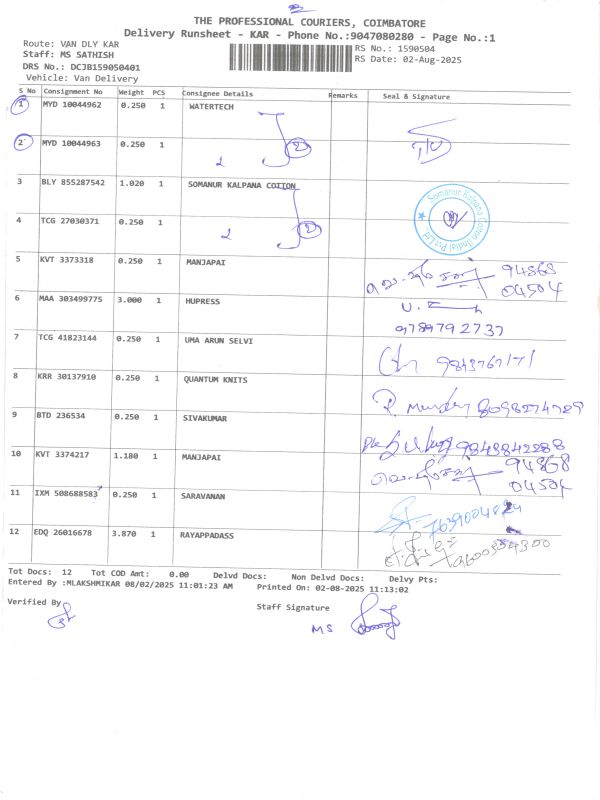 THE PROFESSIONAL COURIERS, COIMBATORE
Delivery Runsheet - KAR - Phone No.:9047080280 - Page No.:1
Route: VAN DLY KAR
RS No.: 1590504
Staff: MS SATHISH
RS Date: 02-Aug-2025
DRS No.: DCJB159050401
Vehicle: Van Delivery
S No Consignment No Weight PCS Consignee Details Remarks Seal & Signature
1 MYD 10044962 0.250 1 WATERTECH
2 MYD 10044963 0.250 1
2
3 BLY 855287542 1.020 1 SOMANUR KALPANA COTTON
Somanur Kalpana Cotton (India) Pvt Ltd
4 TCG 27030371 0.250 1
2
5 KVT 3373318 0.250 1 MANJAPAI 94868
04504
6 MAA 303499775 3.000 1 HUPRESS
9789792737
7 TCG 41823144 0.250 1 UMA ARUN SELVI
9843767171
8 KRR 30137910 0.250 1 QUANTUM KNITS
8098274729
9 BTD 236534 0.250 1 SIVAKUMAR
9843842288
10 KVT 3374217 1.180 1 MANJAPAI 94868
04504
11 IXM 508688583 0.250 1 SARAVANAN
12 EDQ 26016678 3.870 1 RAYAPPADASS
Tot Docs: 12 Tot COD Amt: 0.00 Delvd Docs: Non Delvd Docs: Delvy Pts:
Entered By :MLAKSHMIKAR 08/02/2025 11:01:23 AM Printed On: 02-08-2025 11:13:02
Verified By
Staff Signature
MS